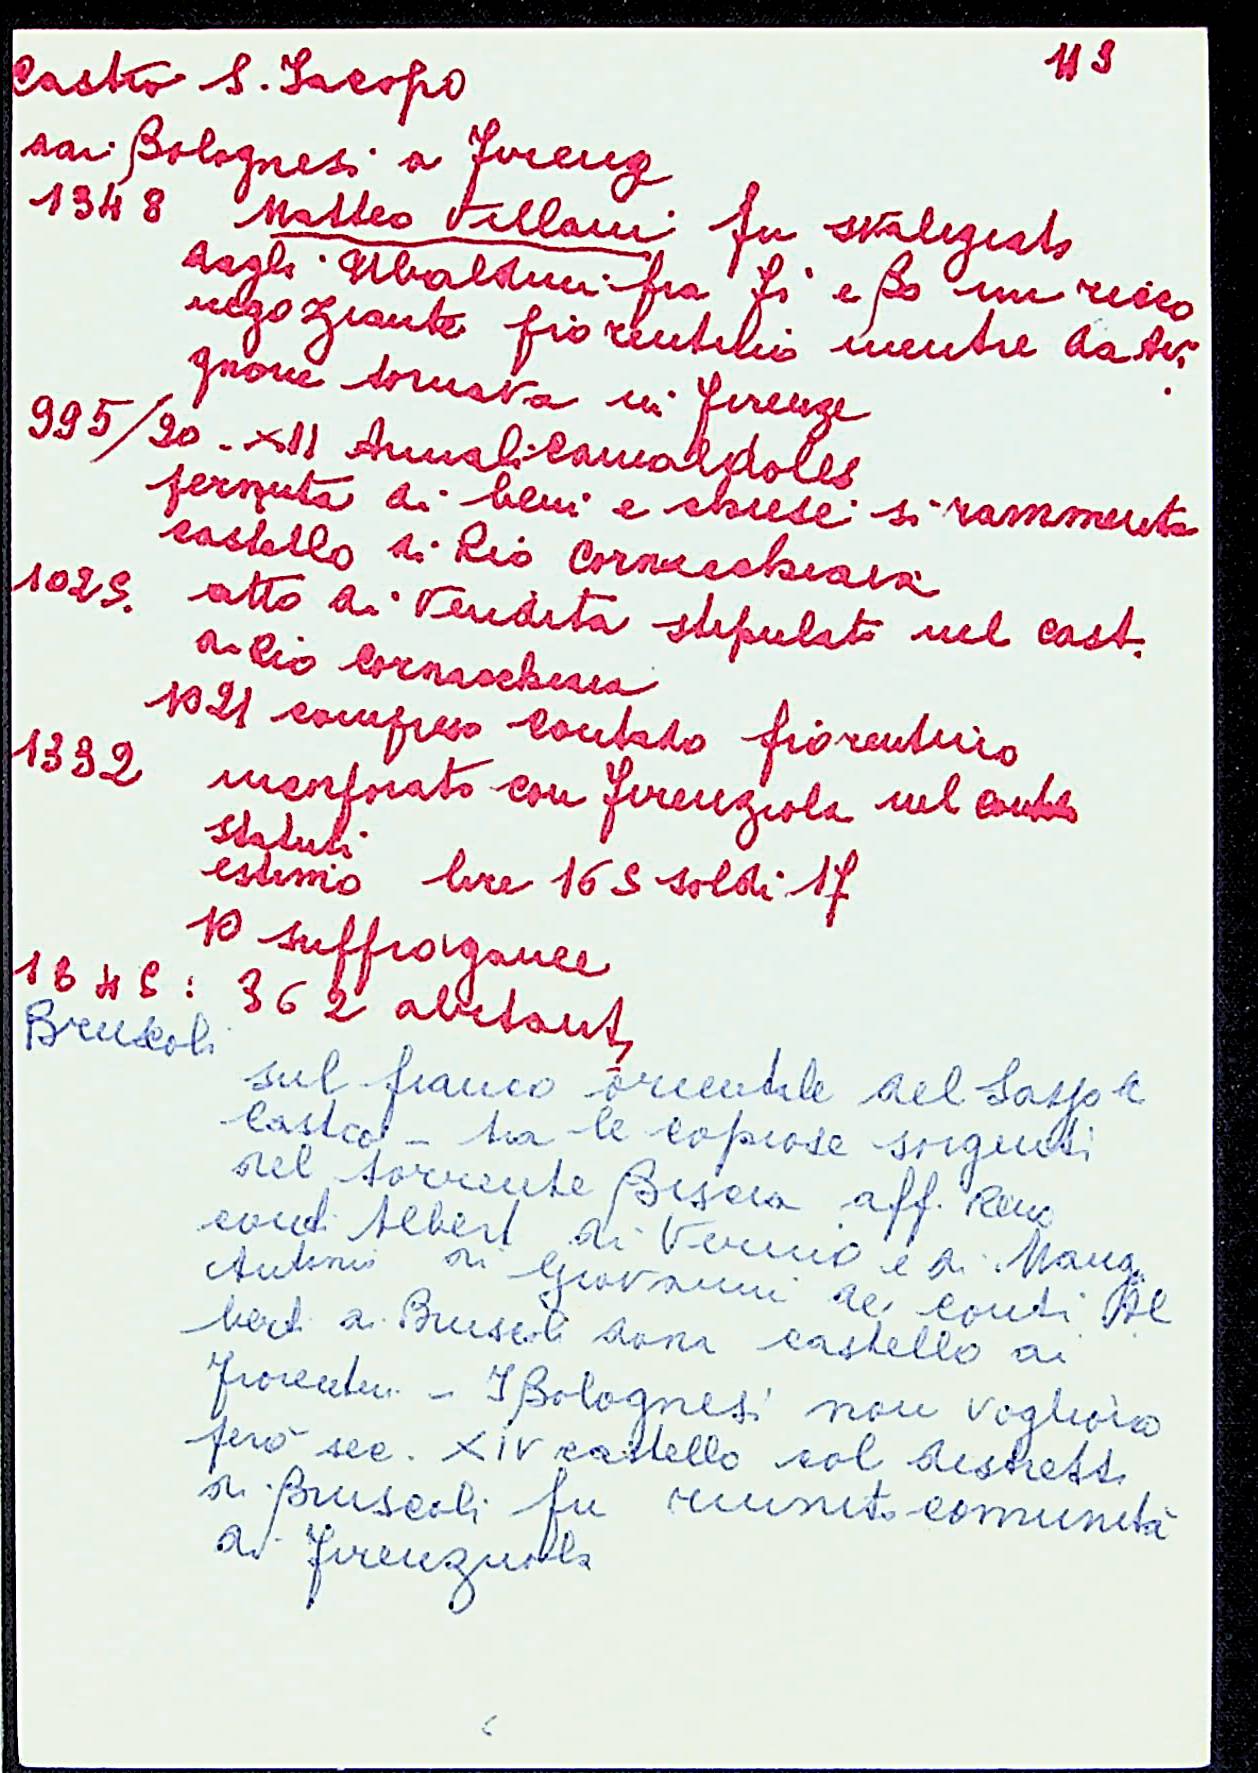 113
Castro S. Jacopo
dai Bolognesi a Firenz
1348 Matteo Villani fu svaligiato
dagli Ubaldini fra Fi e Bo un ricco
negoziante fiorentino mentre da Avi
gnone tornava in Firenze
995/20 - XII Annali Camaldoles
permuta di beni e chiese si rammenta
castello di Rio Cornacchiaia
1029. atto di vendita stipulato nel cast.
di Rio Cornacchiaia
1021 compreso contado fiorentino
1332 incorporato con Firenzuola nel
statuti
estimo lire 169 soldi 17
10 suffraganee
1845: 362 abitanti
Bruscoli
sul fianco orientale del Sasso di
Castro - tra le copiose sorgenti
del torrente Biscia aff. Reno
conti Alberti di Vernio e di Mang.
Antonio di Giovanni dei conti Al
berti di Bruscoli dona castello ai
Fiorentini - I Bolognesi non vogliono
però sec. XIV castello col distretto
di Bruscoli fu riunito comunità
di Firenzuola